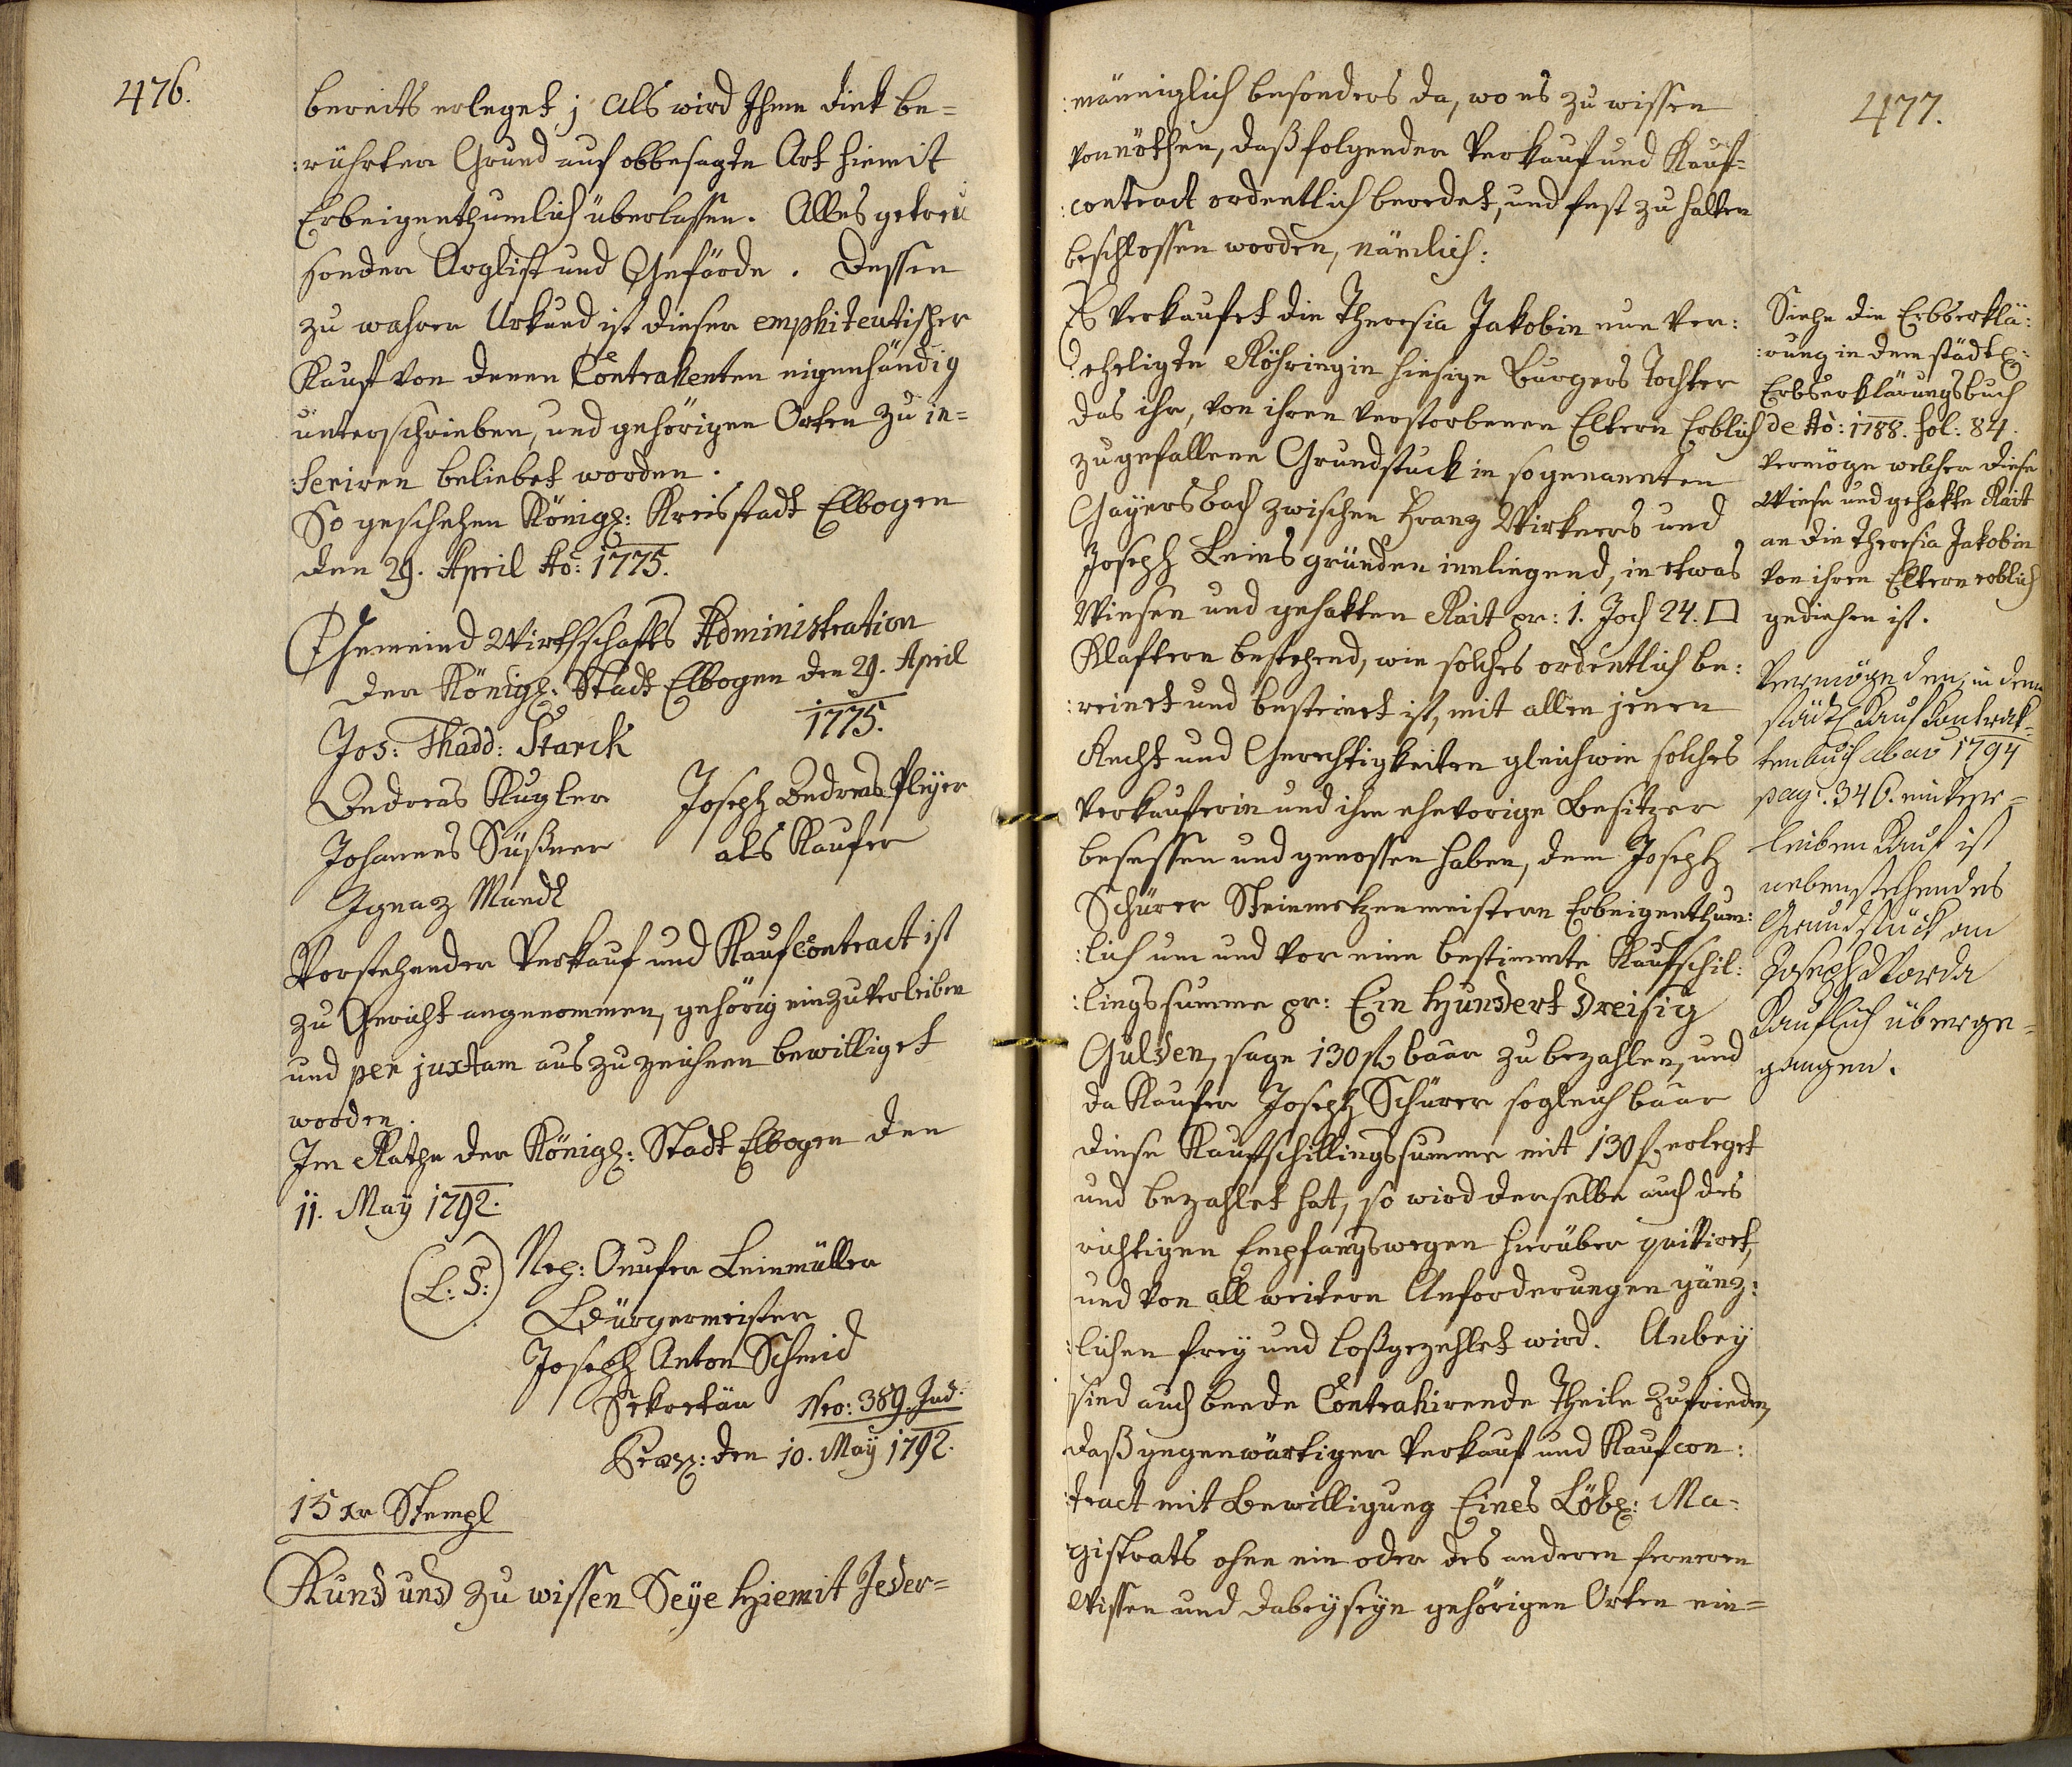 476.
bereits erleget; Als wird Ihme dick be=
:rührter Grund auf obbesagte Art hiemit
Erbeigenthumlich überlassen. Alles getreu
sonder Arglist und Gefärde. Dessen
zu wahrer Urkund ist dieser emphiteutischer
Kauf von denen Contrahenten eigenhändig
unterschrieben, und gehörigen Orten zu in=
:seriren beliebet worden.
So geschehen Königl: Kreisstadt Elbogen
den 29. April Ao: 1775.
Gemeind Wirthschafts Administration
der Königl: Stadt Elbogen den 29. April
1775.
Jos: Thadd: Starck
Andreas Kugler Joseph Andreas Pleyer
Johannes Süßner als Kaufer
Ignaz Mandl
Vorstehender Verkauf und Kaufcontract ist
zu Gericht angenommen, gehörig einzuverleiben
und per juxtam auszuzeichnen bewilliget
worden.
Im Rathe der Königl: Stadt Elbogen den
11. May 1792.
(L: S:) Nep: Onufer Leinmüller
Bürgermeister
Joseph Anton Schmid
Sekretär Nro: 389. Jud:
Praes: den 10. May 1792.
15 xr Stempl
Kund und zu wissen Seye Hiemit Jeder=
477.
:männiglich besonders da, wo es zu wissen
vonnöthen, daß folgender Verkauf und Kauf=
:contract ordentlich beredet, und fest zu halten
beschlossen worden, nämlich:
Es verkaufet die Theresia Jakobin nun ver:
:eheligte Röhringin hiesige Burgers Tochter
das ihr, von ihren verstorbenen Eltern Erblich
zugefallene Grundstuck in sogenannten
Gayersbach zwischen Franz Wirkners und
Joseph Leins gründen innliegend, in etwas
Wiesen und gehakten Rait pr: 1. Joch 24. □
Klaftern bestehend, wie solches ordentlich be:
:reinet und besteinet ist, mit allen jenen
Recht und Gerechtigkeiten gleichwie solches
Verkauferin und ihre ehevorige Besitzer
besessen und genossen haben, dem Joseph
Schürer Steinmetzenmeistern Erbeigenthum:
:lich um und vor eine bestimmte Kaufschil:
:lingssumme pr: Ein Hundert Dreisig
Gulden, sage 130 f baar zu bezahlen, und
da Kaufer Joseph Schürer sogleich baar
diese Kaufschillingssumme mit 130 f. erleget
und bezahlet hat, so wird derselbe auch des
richtigen Empfangswegen hierüber quittiret,
und von all weitern Anforderungen gänz:
:lichen frey und loßgezehlet wird. Anbey
sind auch beede Contrahirende Theile zufrieden,
daß gegenwärtiger Verkauf und Kaufcon:
:tract mit Bewilligung Eines Löbl: Ma=
gistrats ohne ein oder des anderen ferneren
Wissen und dabeyseyn gehörigen Orten ein=
Siehe die Erbserklä:
:rung in dem städtl:
Erbserklärungsbuch
de Ao: 1788. fol: 84.
vermöge welcher diese
Wiese und gehakte Rait
an die Theresia Jakobin
von ihren Eltern erblich
gediehen ist.
Vermöge den, in dem
städtl Kauf Kontrak=
tenbuch ab ao 1794
pag. 346. einver=
leiben Kauf ist
nebenstehendes
Grundstück an
Joseph
Kauflich überge=
gangen.